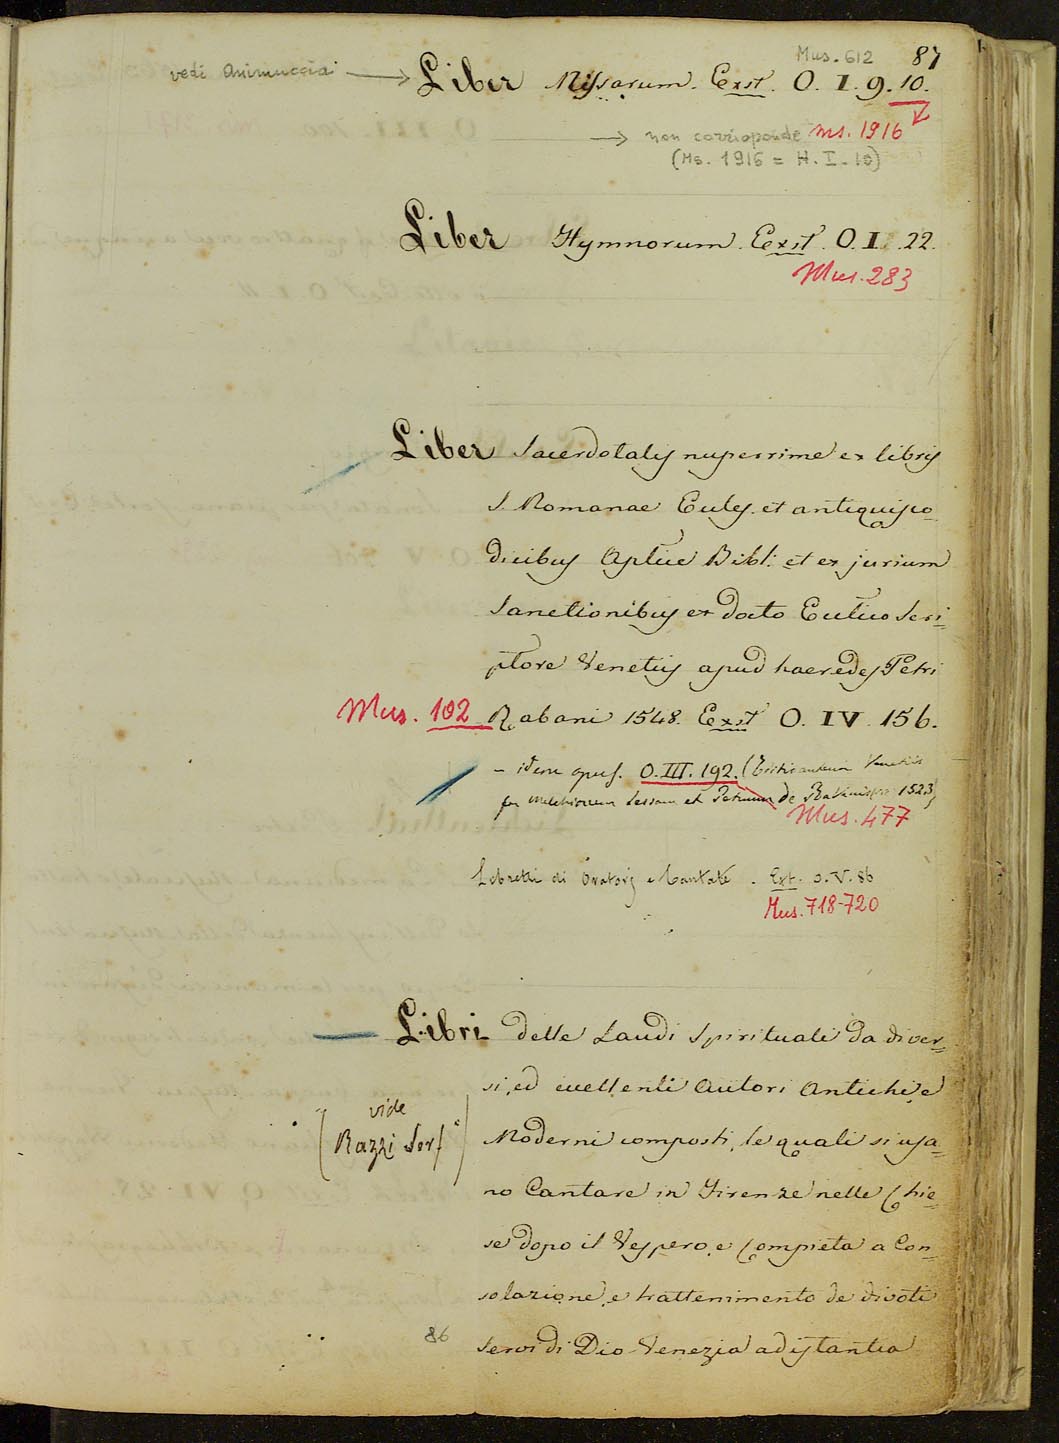 Mus. 612 87
vedi Animuccia → Liber Missarum. Exst. O. I. 9. 10.
→ non corrisponde ms. 1916
(Ms. 1916 = H. I. 10)
Liber Hymnorum. Exst. O. I. 22.
Mus. 283
Liber Sacerdotalis nuperrime ex libris
S. Romanae Eccles. et antiquis co=
dicibus Aplicę Bibl: et ex jurium
Sanctionibus ex docto Scri=
ptore Venetiis apud haeredes Petri
Mus. 102 Rabani 1548. Exst O. IV. 156.
– idem opus. O. III. 192. ( Venetiis
per Melchiorem Sessam et Petrum de 1523)
Mus. 477
Libretti di Oratorj e Cantate. Ext. O. V. 86
Mus. 718-720
Libri delle Laudi Spirituali da diver=
si, ed eccellenti Autori Antichi, e
(vide Moderni composti, le quali si usa=
Razzi Ser.)
no Cantare in Firenze nelle Chie=
se dopo il Vespero, e Compieta a Con=
solazione, e trattenimento de divoti
86 Servi di Dio Venezia ad istantia